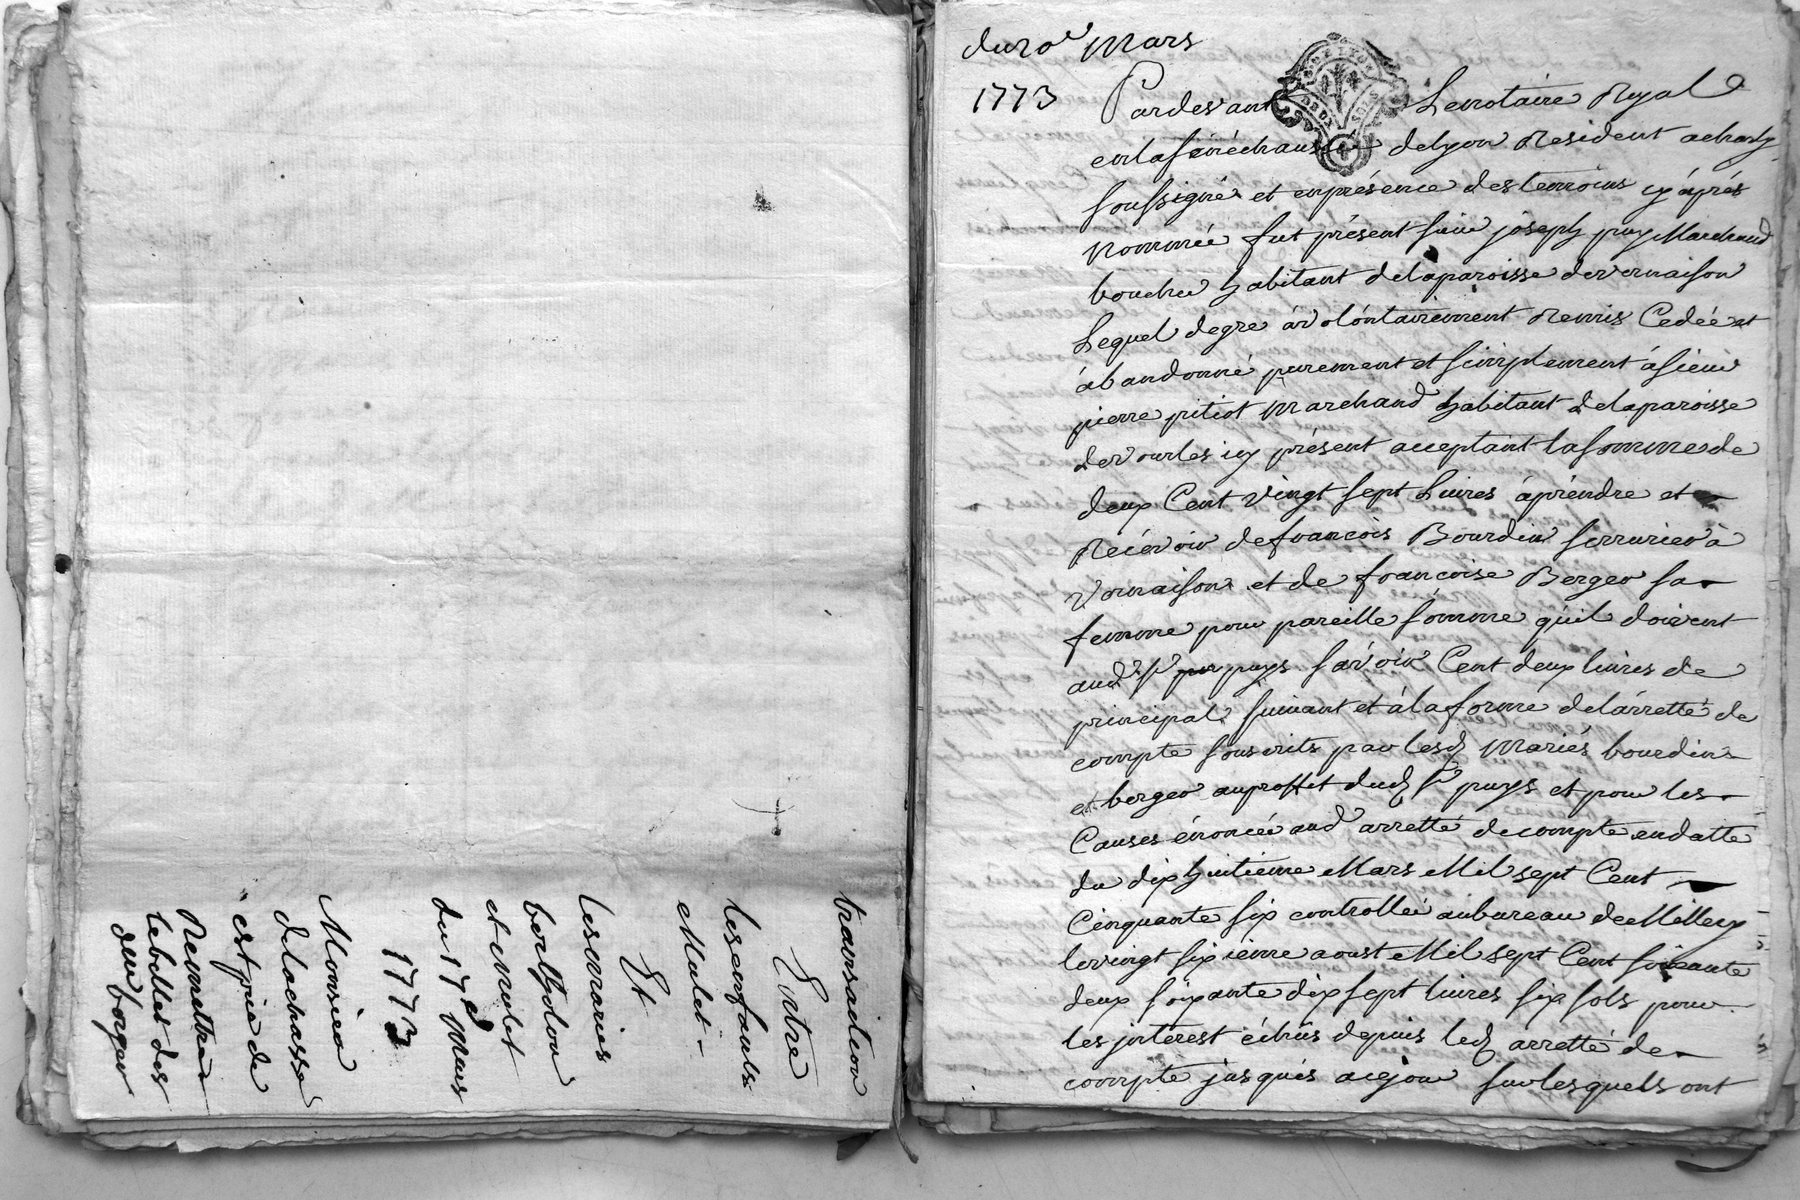 transaction
Entre
les enfants
Mulet
Et
les maries
berlydon
et mulet
du 17e Mars
1773
Monsieur
delachasse
est prie de
Remettre
le billet des
du 20e Mars
1773
Pardevant Lenotaire Royal
enlasénéchaussée delyon Resident acharly
soussigné et enprésence destemoins cy áprés
Nommée fut présent sieur joseph puy Marchand
boucher habitant delaparoisse devernaison
Lequel degre ávolóntairement Remis Cedée et
ábandonné purement et simplement ásieur
pierre pitiot Marchand habitant delaparoisse
devourles icy présent acceptant lasomme de
deux Cent vingt sept Livres áprendre et
Recévoir defrancois Bourdin serrurier á
vernaison et de francoise Berger sa
femme pour pareille sómme quil doivent
aud sr puys sávoir Cent deux livres de
principal suivant et álaforme delárretté de
compte souscrits par lesd Mariés bourdin
et berger auproffit dud sr puys et pour les
Causes énoncée aud arretté decompte endatte
du dix huitieme Mars Mil sept Cent
Cinquante six controllée aubureau deMillery
levingt sixiéme aoust Mil sept Cent soixante
deux soixante dix sept livres six sols pour
les jnterest échûs depuis led arretté de
compte jusques acejour surlesquels ont